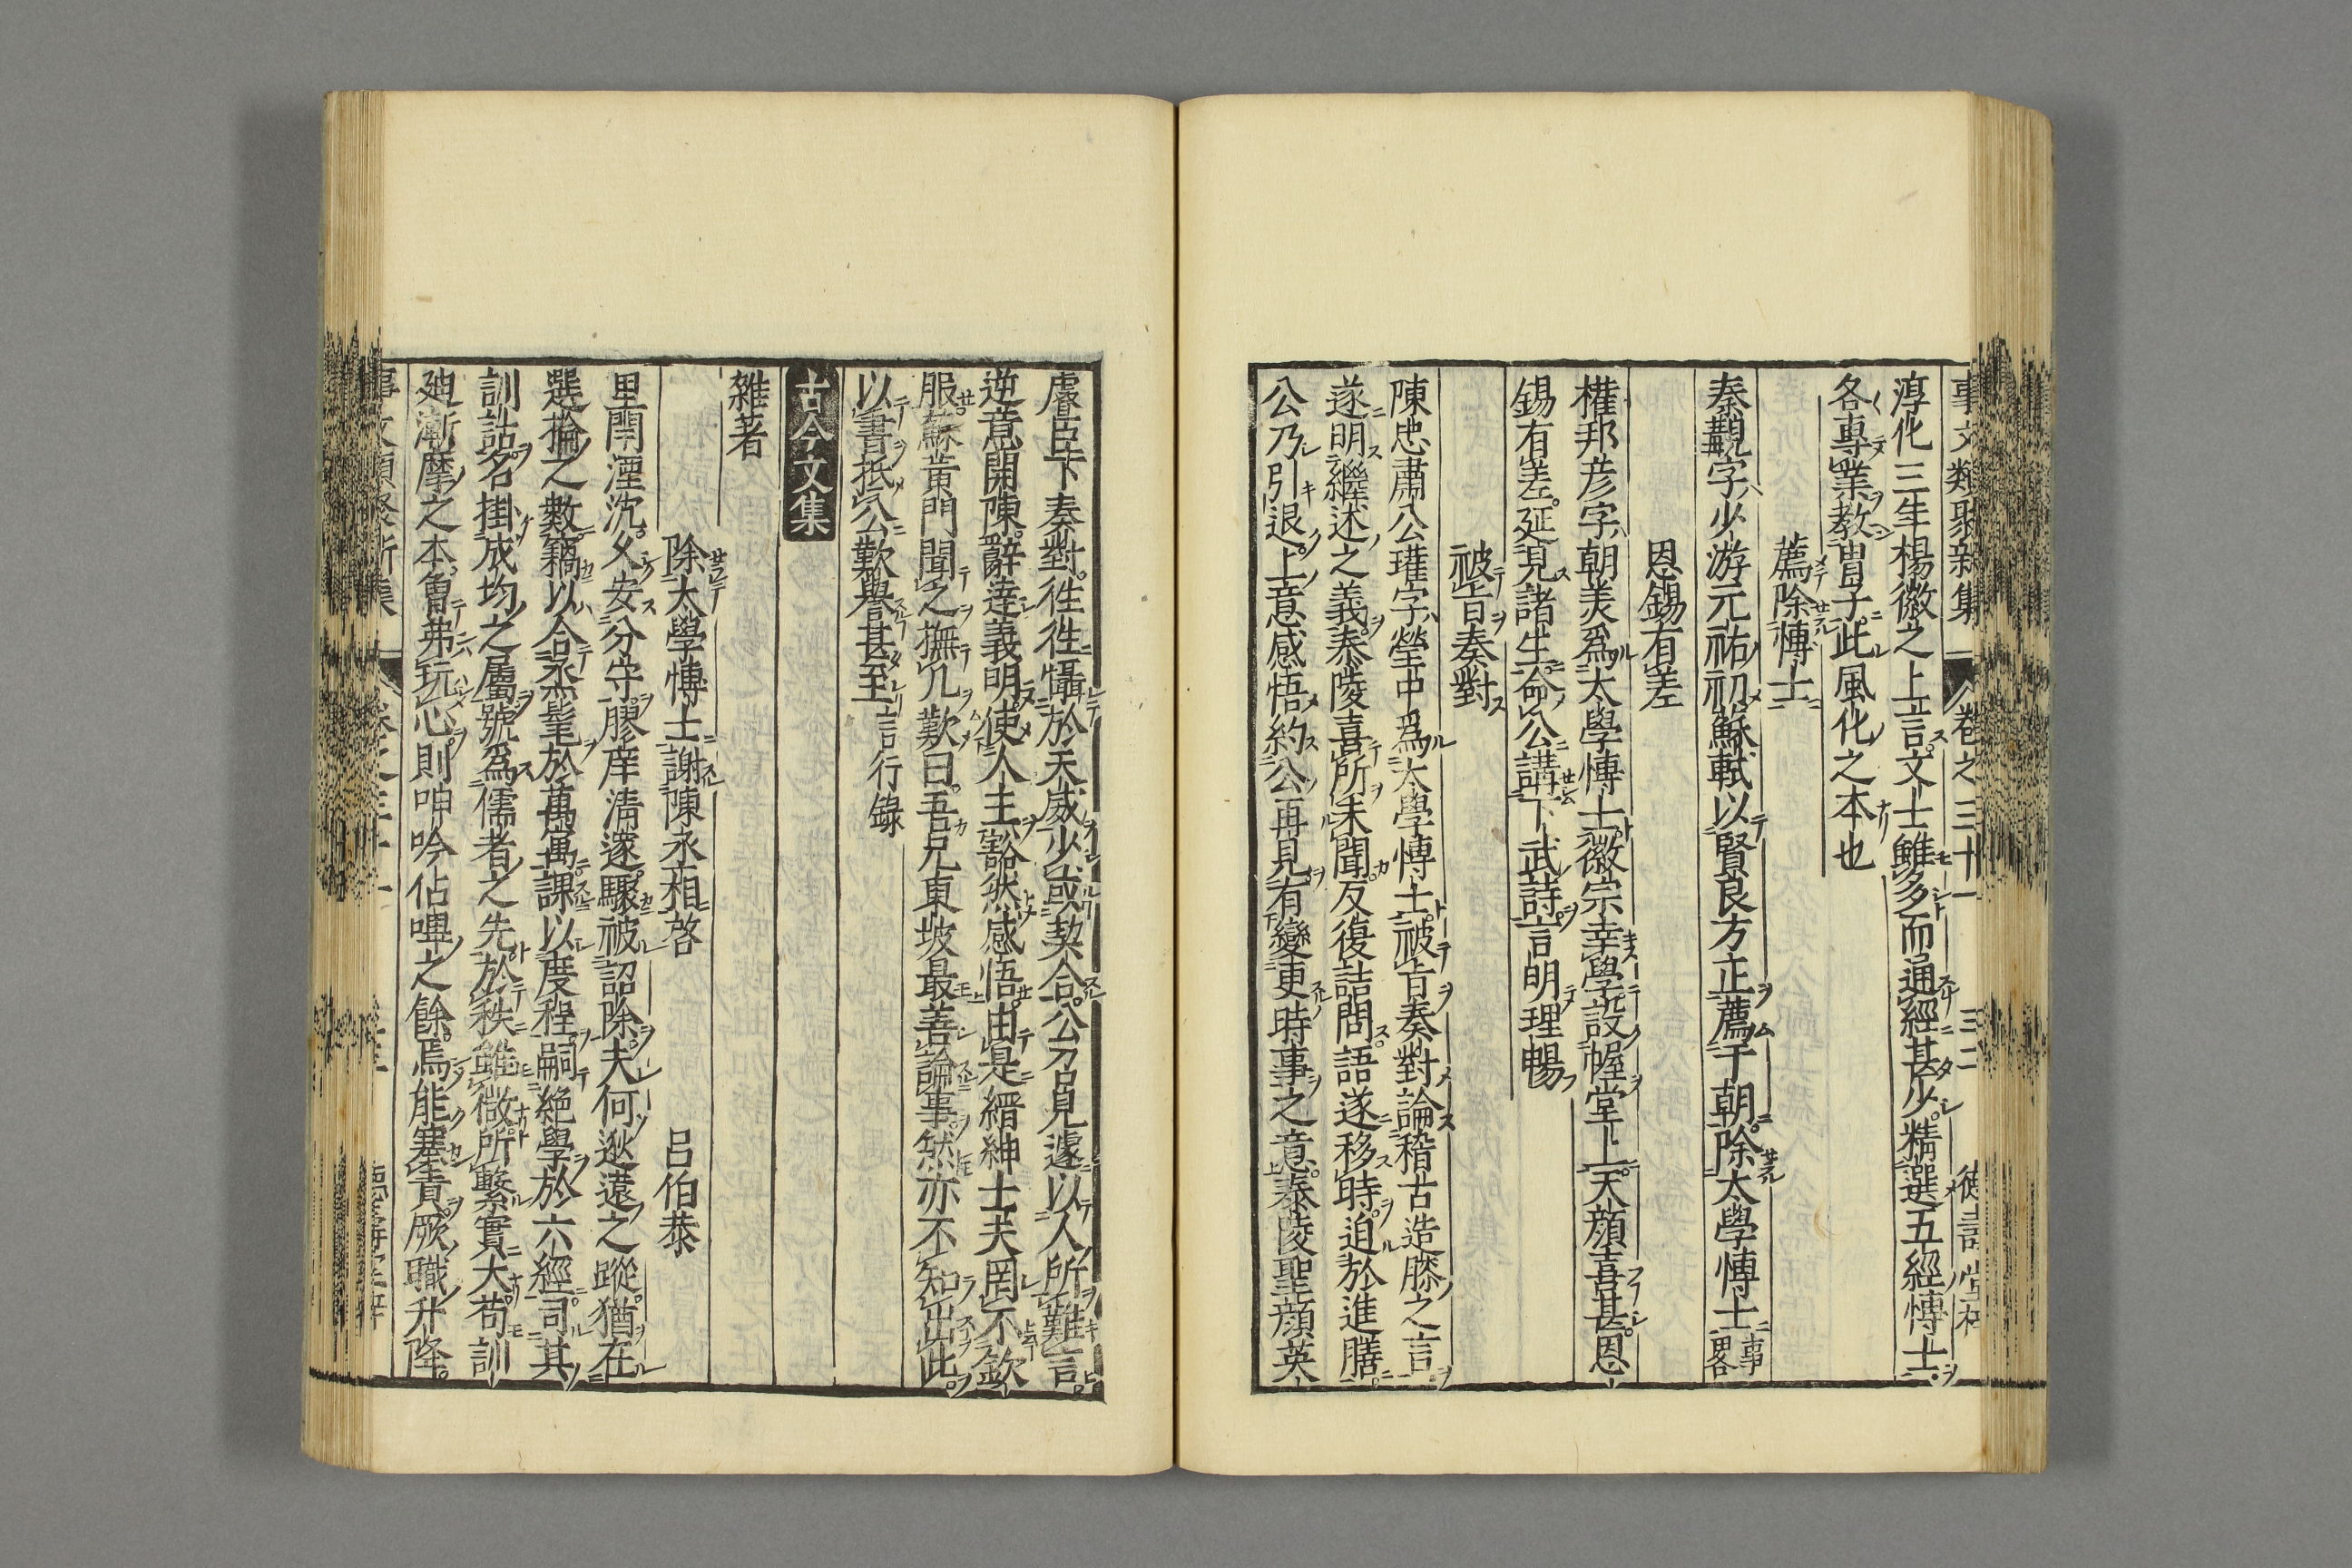 事文類聚新集 卷之三十一 三二 德壽堂梓
淳化三年楊徽之上言文士雖多而通經甚少精選五經博士
各專業教胄子此風化之本也
薦除博士
秦觀字少游元祐初蘇軾以賢良方正薦于朝除太學博士事畧
恩錫有差
權邦彦字朝美爲太學博士徽宗幸學設幄堂上天顔喜甚恩
錫有差延見諸生命公講下武詩言明理暢
被旨奏對
陳忠肅公瓘字瑩中爲太學博士被旨奏對論稽古造膝之言
遂明繼述之義泰陵喜所未聞反復詰問語遂移時迫於進膳
公乃引退上意感悟約公再見有變更時事之意泰陵聖顔英
睿臣下奏對徃徃懾於天威少或契合公召見遽以人所難言
逆意開陳辭達義明使人主豁然感悟由是縉紳士夫罔不欽
服蘇黄門聞之撫几歎曰吾兄東坡最善論事然亦不知出此
以書抵公歎譽甚至言行録
古今文集
雜著
除太學博士謝陳丞相啓 吕伯恭
里閈湮沈久安分守膠庠清邃驟被詔除夫何逖遠之蹤猶在
選掄之數竊以合丞髦於萬寓課以度程嗣絶學於六經司其
訓詁名掛成均之屬號爲儒者之先於秩雖微所繫實大苟訓
廸漸摩之本曽弗玩心則呻吟佔嗶之餘焉能塞責厥職升降